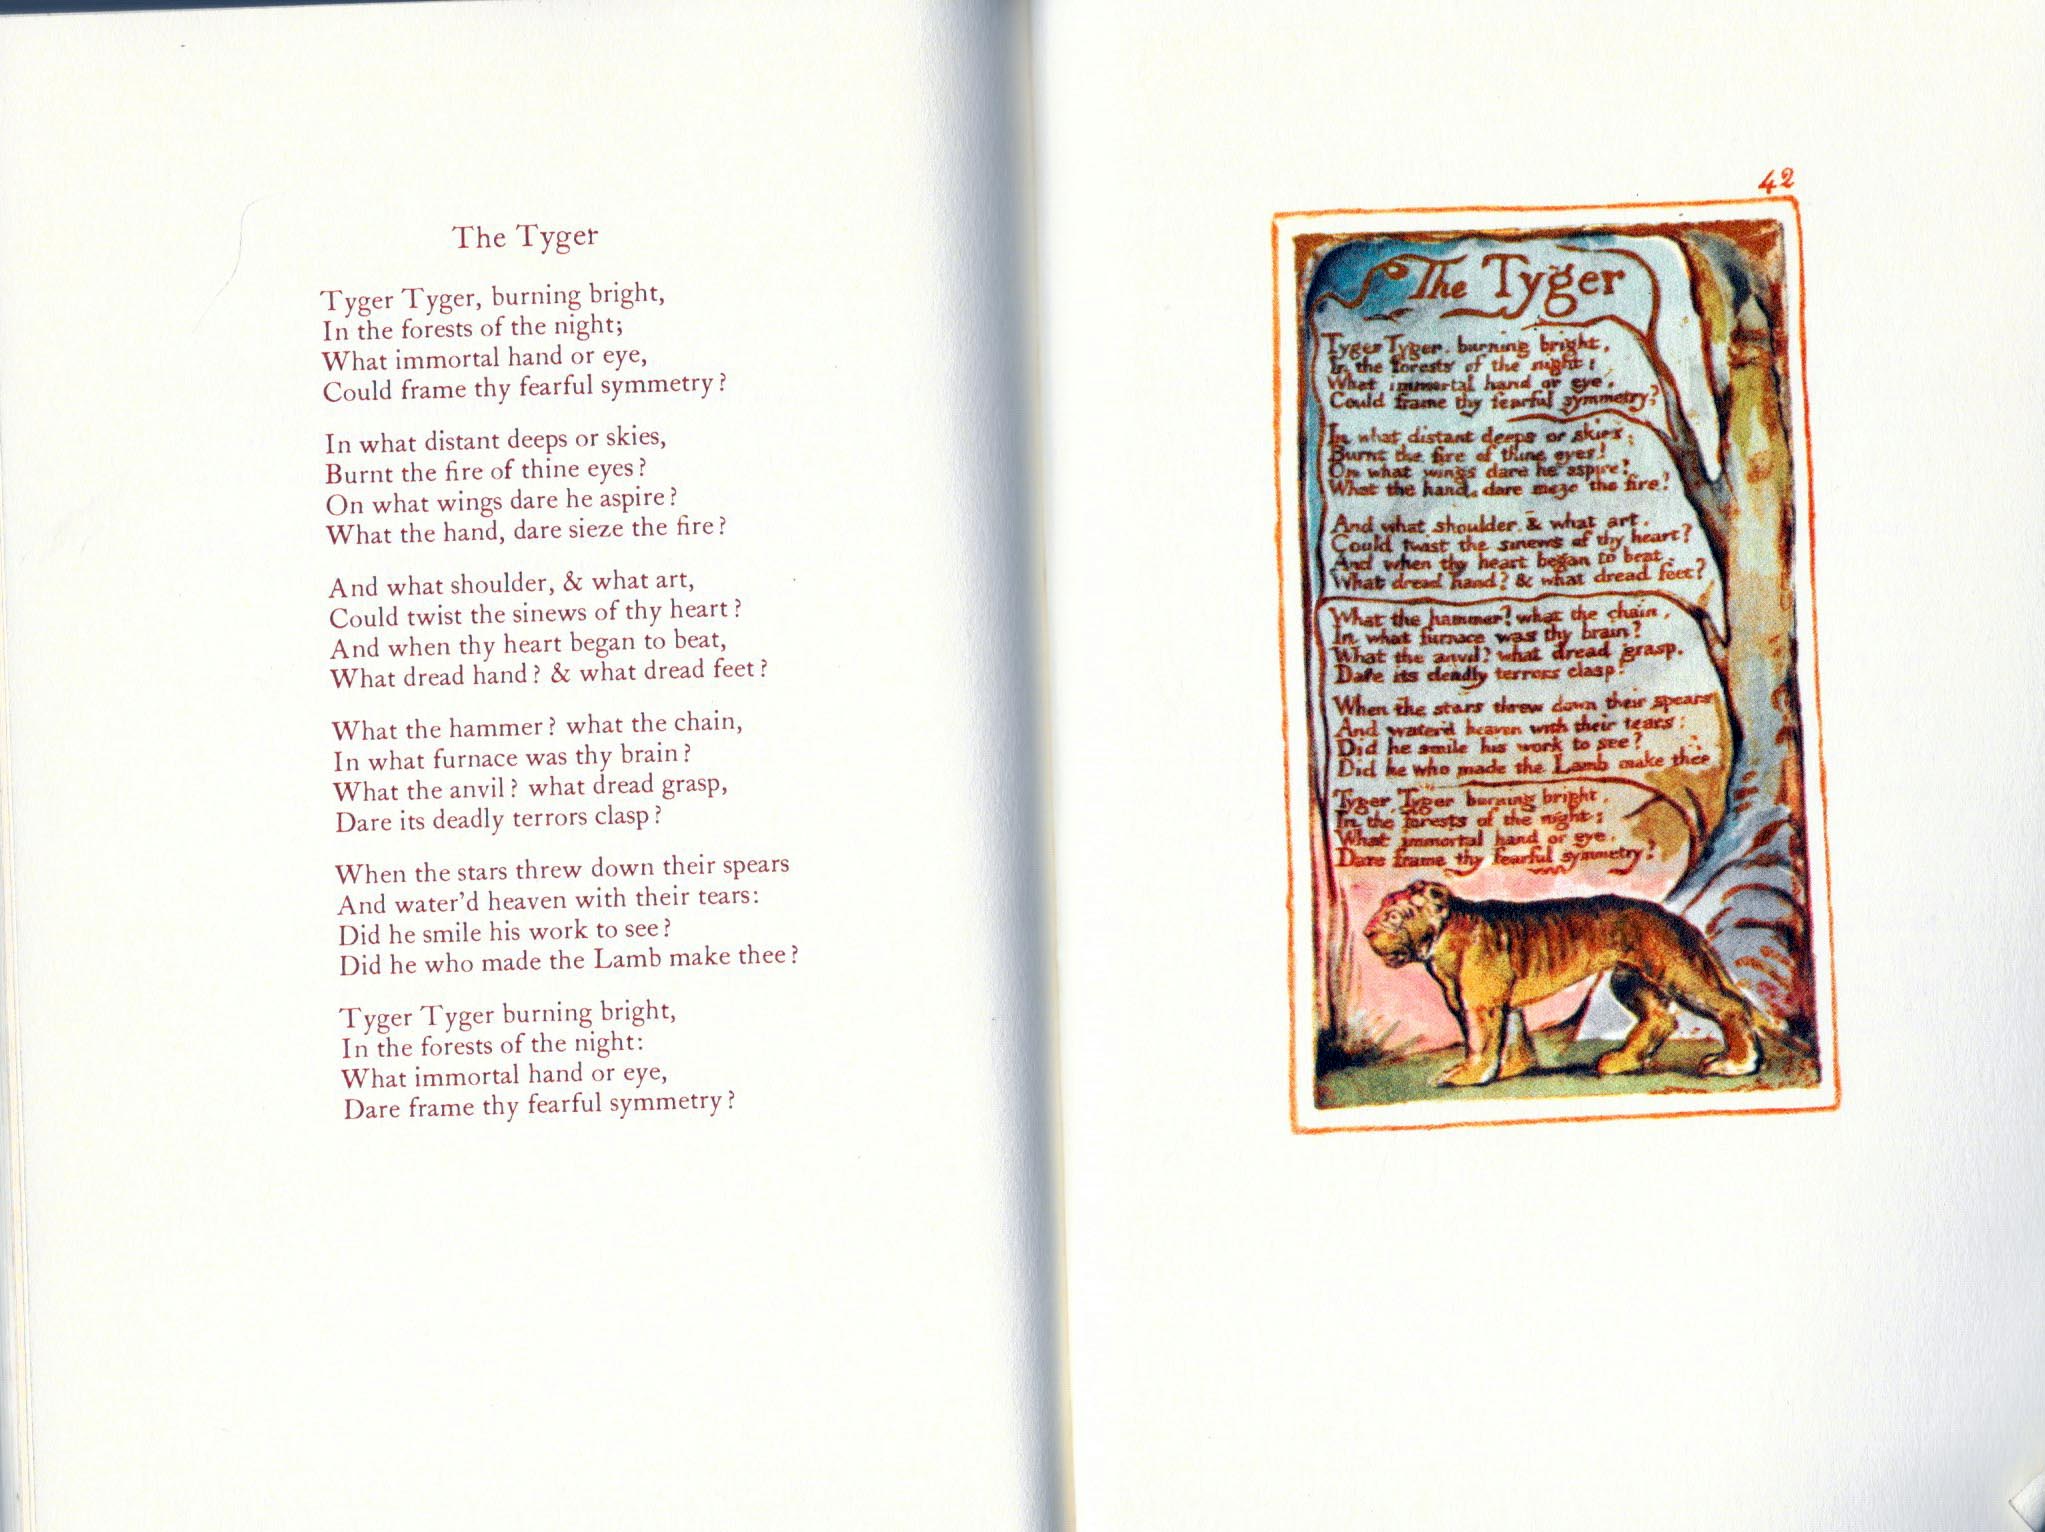 The Tyger
Tyger Tyger, burning bright,
In the forests of the night;
What immortal hand or eye,
Could frame thy fearful symmetry?
In what distant deeps or skies,
Burnt the fire of thine eyes?
On what wings dare he aspire?
What the hand, dare sieze the fire?
And what shoulder, & what art,
Could twist the sinews of thy heart?
And when thy heart began to beat,
What dread hand? & what dread feet?
What the hammer? what the chain,
In what furnace was thy brain?
What the anvil? what dread grasp,
Dare its deadly terrors clasp?
When the stars threw down their spears
And water'd heaven with their tears:
Did he smile his work to see?
Did he who made the Lamb make thee?
Tyger Tyger burning bright,
In the forests of the night:
What immortal hand or eye,
Dare frame thy fearful symmetry?
42
The Tyger
Tyger Tyger. burning bright,
In the forests of the night:
What immortal hand or eye.
Could frame thy fearful symmetry?
In what distant deeps or skies.
Burnt the fire of thine eyes?
On what wings dare he aspire?
What the hand, dare the fire?
And what shoulder, & what art,
Could twist the sinews of thy heart?
And when thy heart began to beat,
What dread hand? & what dread feet?
What the hammer? what the chain,
In what furnace was thy brain?
What the anvil? what dread grasp,
Dare its deadly terrors clasp!
When the stars threw down their spears
And water'd heaven with their tears:
Did he smile his work to see?
Did he who made the Lamb make thee
Tyger Tyger burning bright,
In the forests of the night:
What immortal hand or eye,
Dare frame thy fearful symmetry?